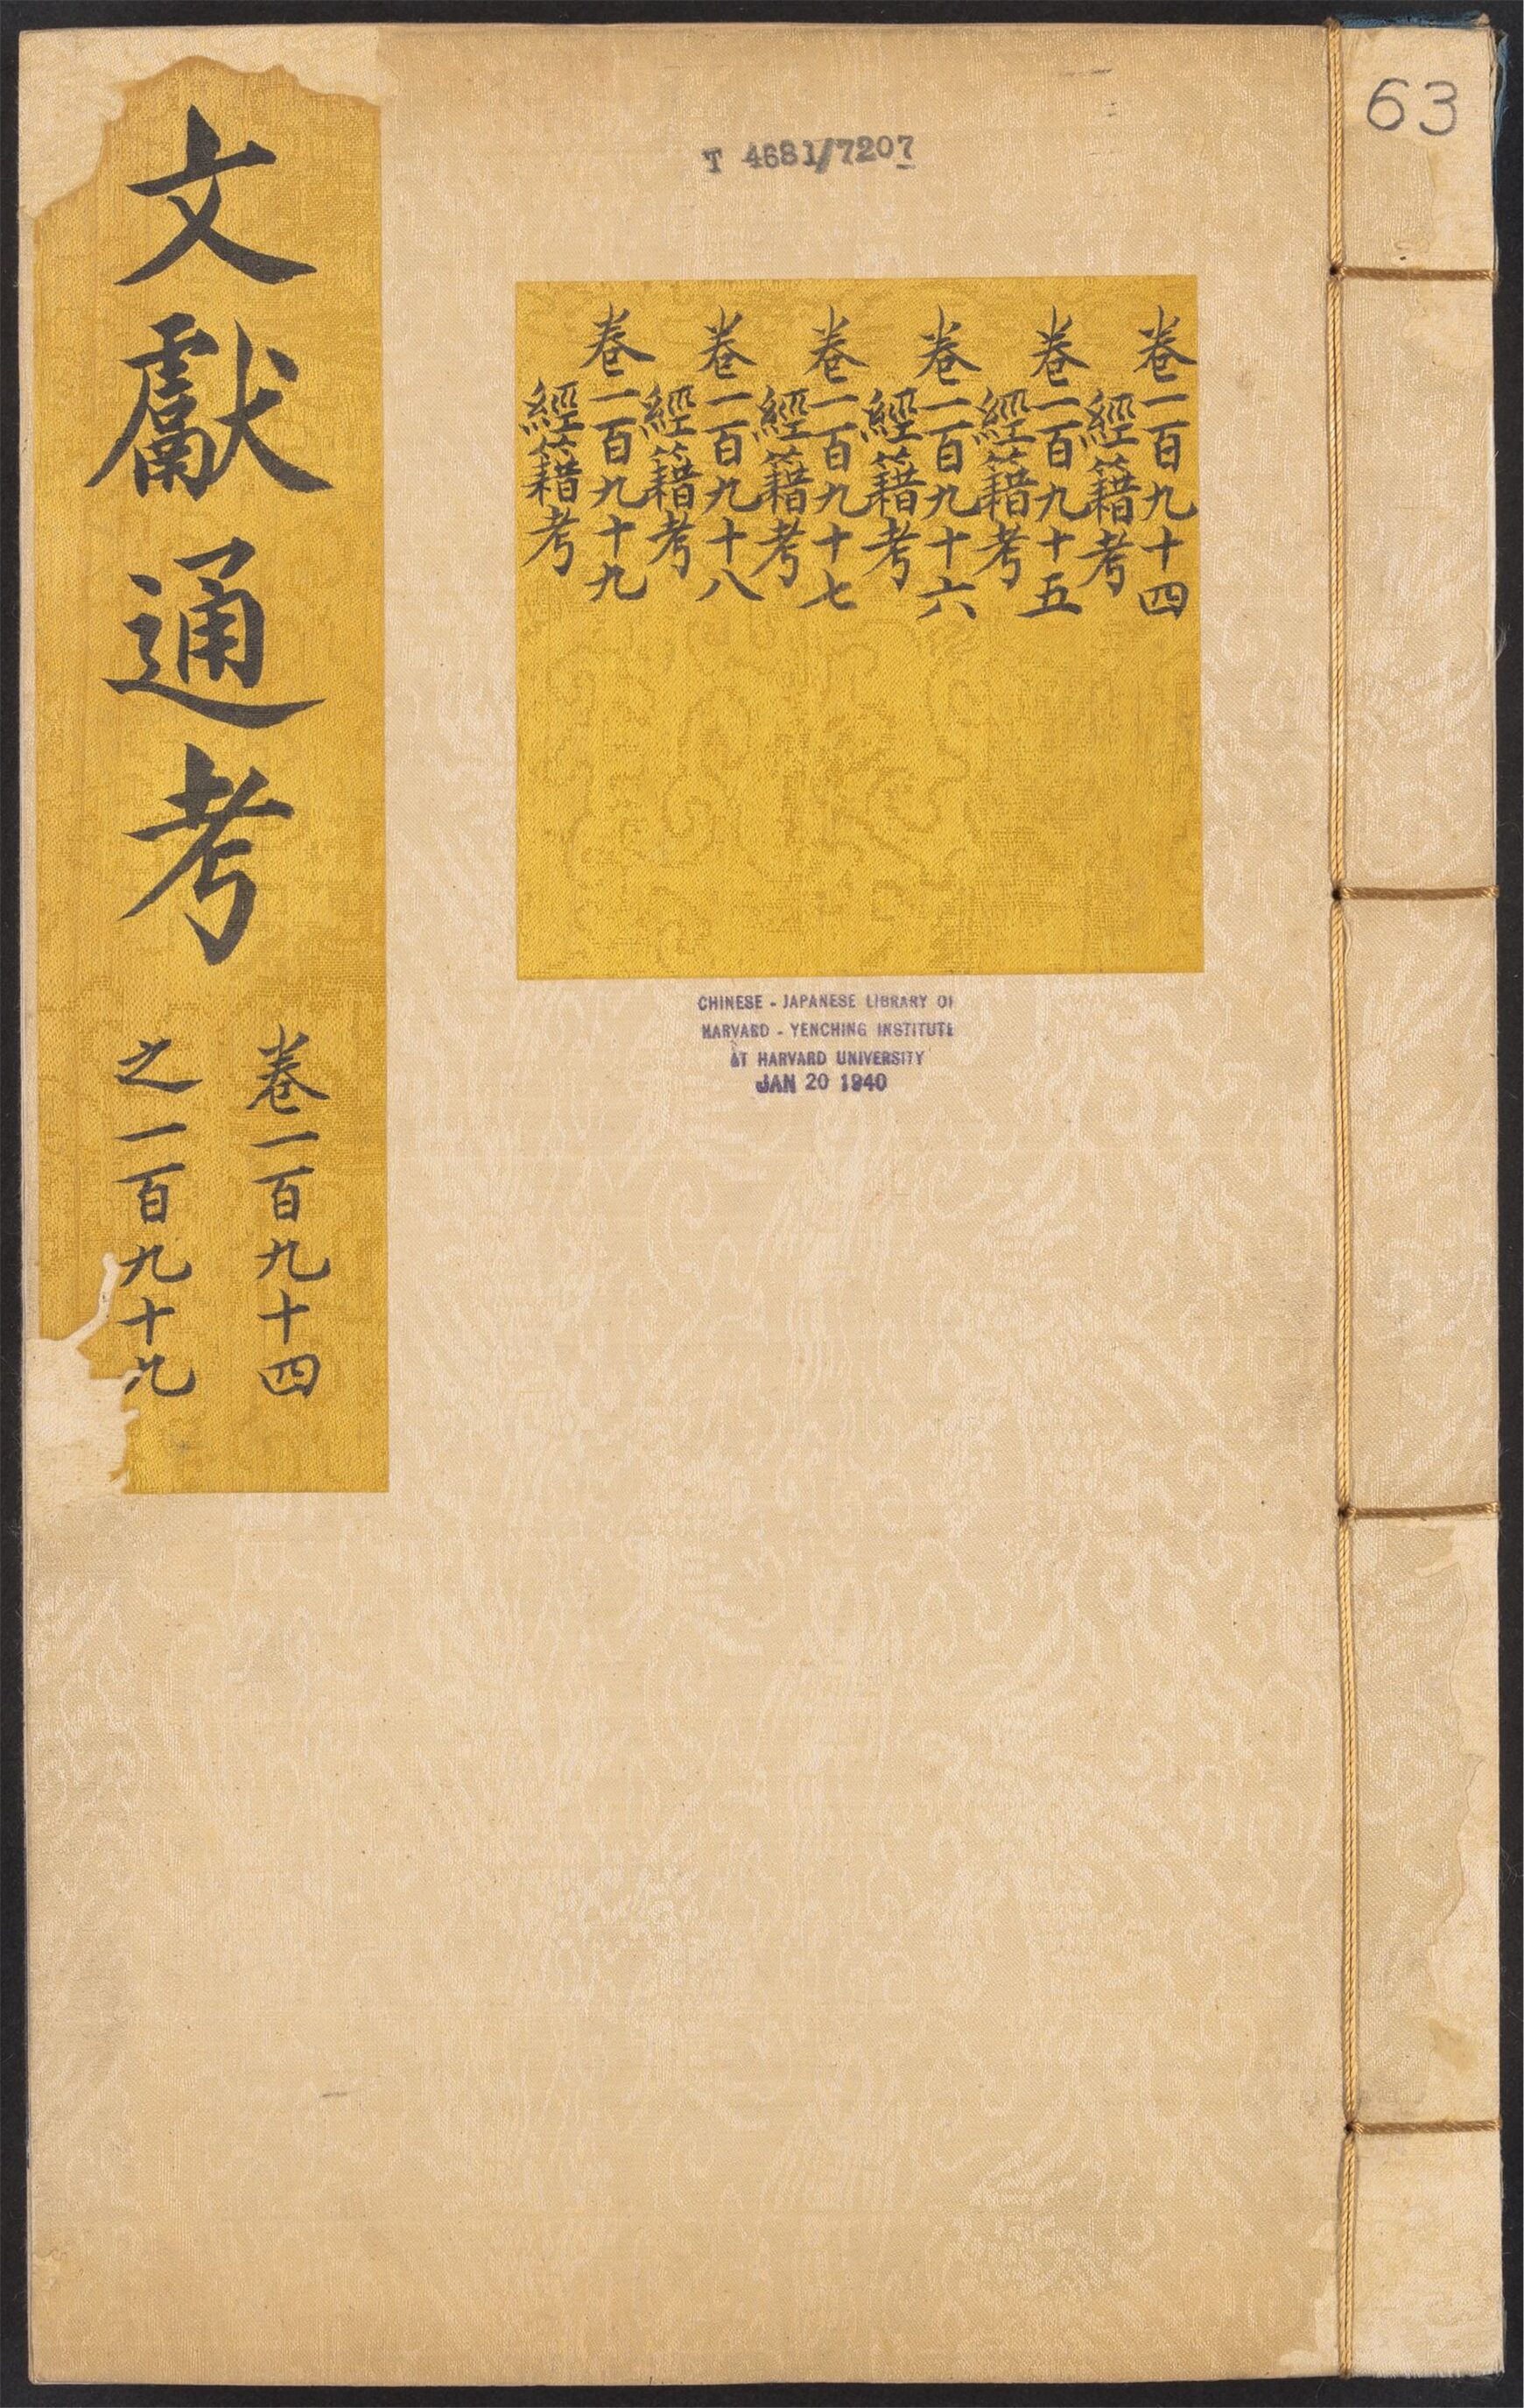 63
T 4681/7207
卷一百九十四
經籍考
卷一百九十五
經籍考
卷一百九十六
經籍考
卷一百九十七
經籍考
卷一百九十八
經籍考
卷一百九十九
經籍考
文獻通考
卷一百九十四
之一百九十九
CHINESE - JAPANESE LIBRARY OF
HARVARD - YENCHING INSTITUTE
AT HARVARD UNIVERSITY
JAN 20 1940